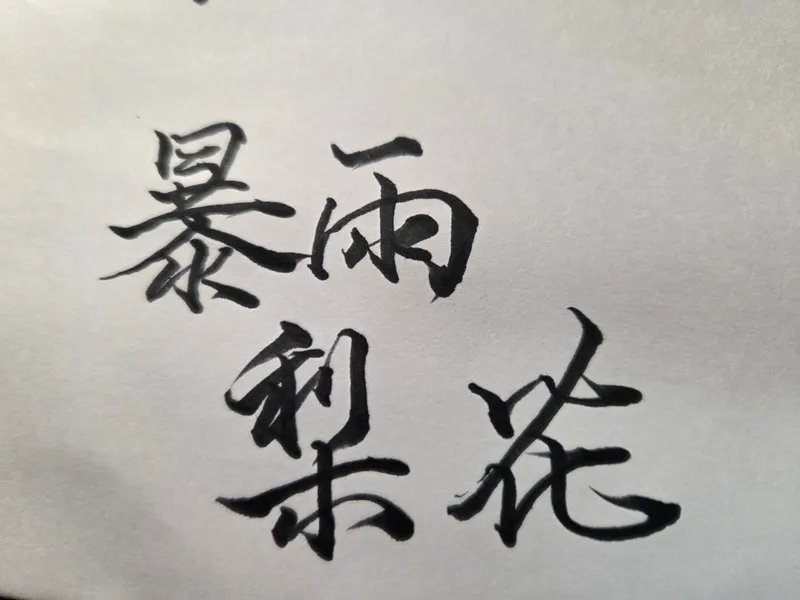 暴雨
梨花